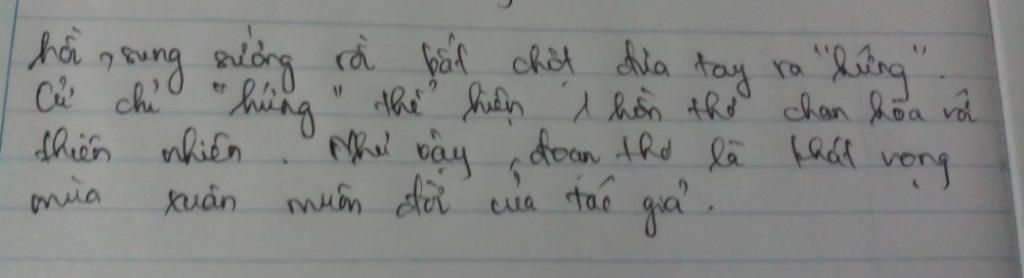 hồ, sung sướng rồi bất chợt đưa tay ra "hứng".
Cử chỉ "hứng" thể hiện 1 hồn thơ chan hòa với
thiên nhiên. Như vậy, đoạn thơ là khát vọng
mùa xuân muôn đời của tác giả.